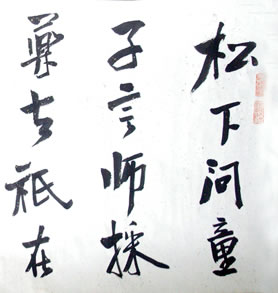 松下问童
子言师採
药去祇在